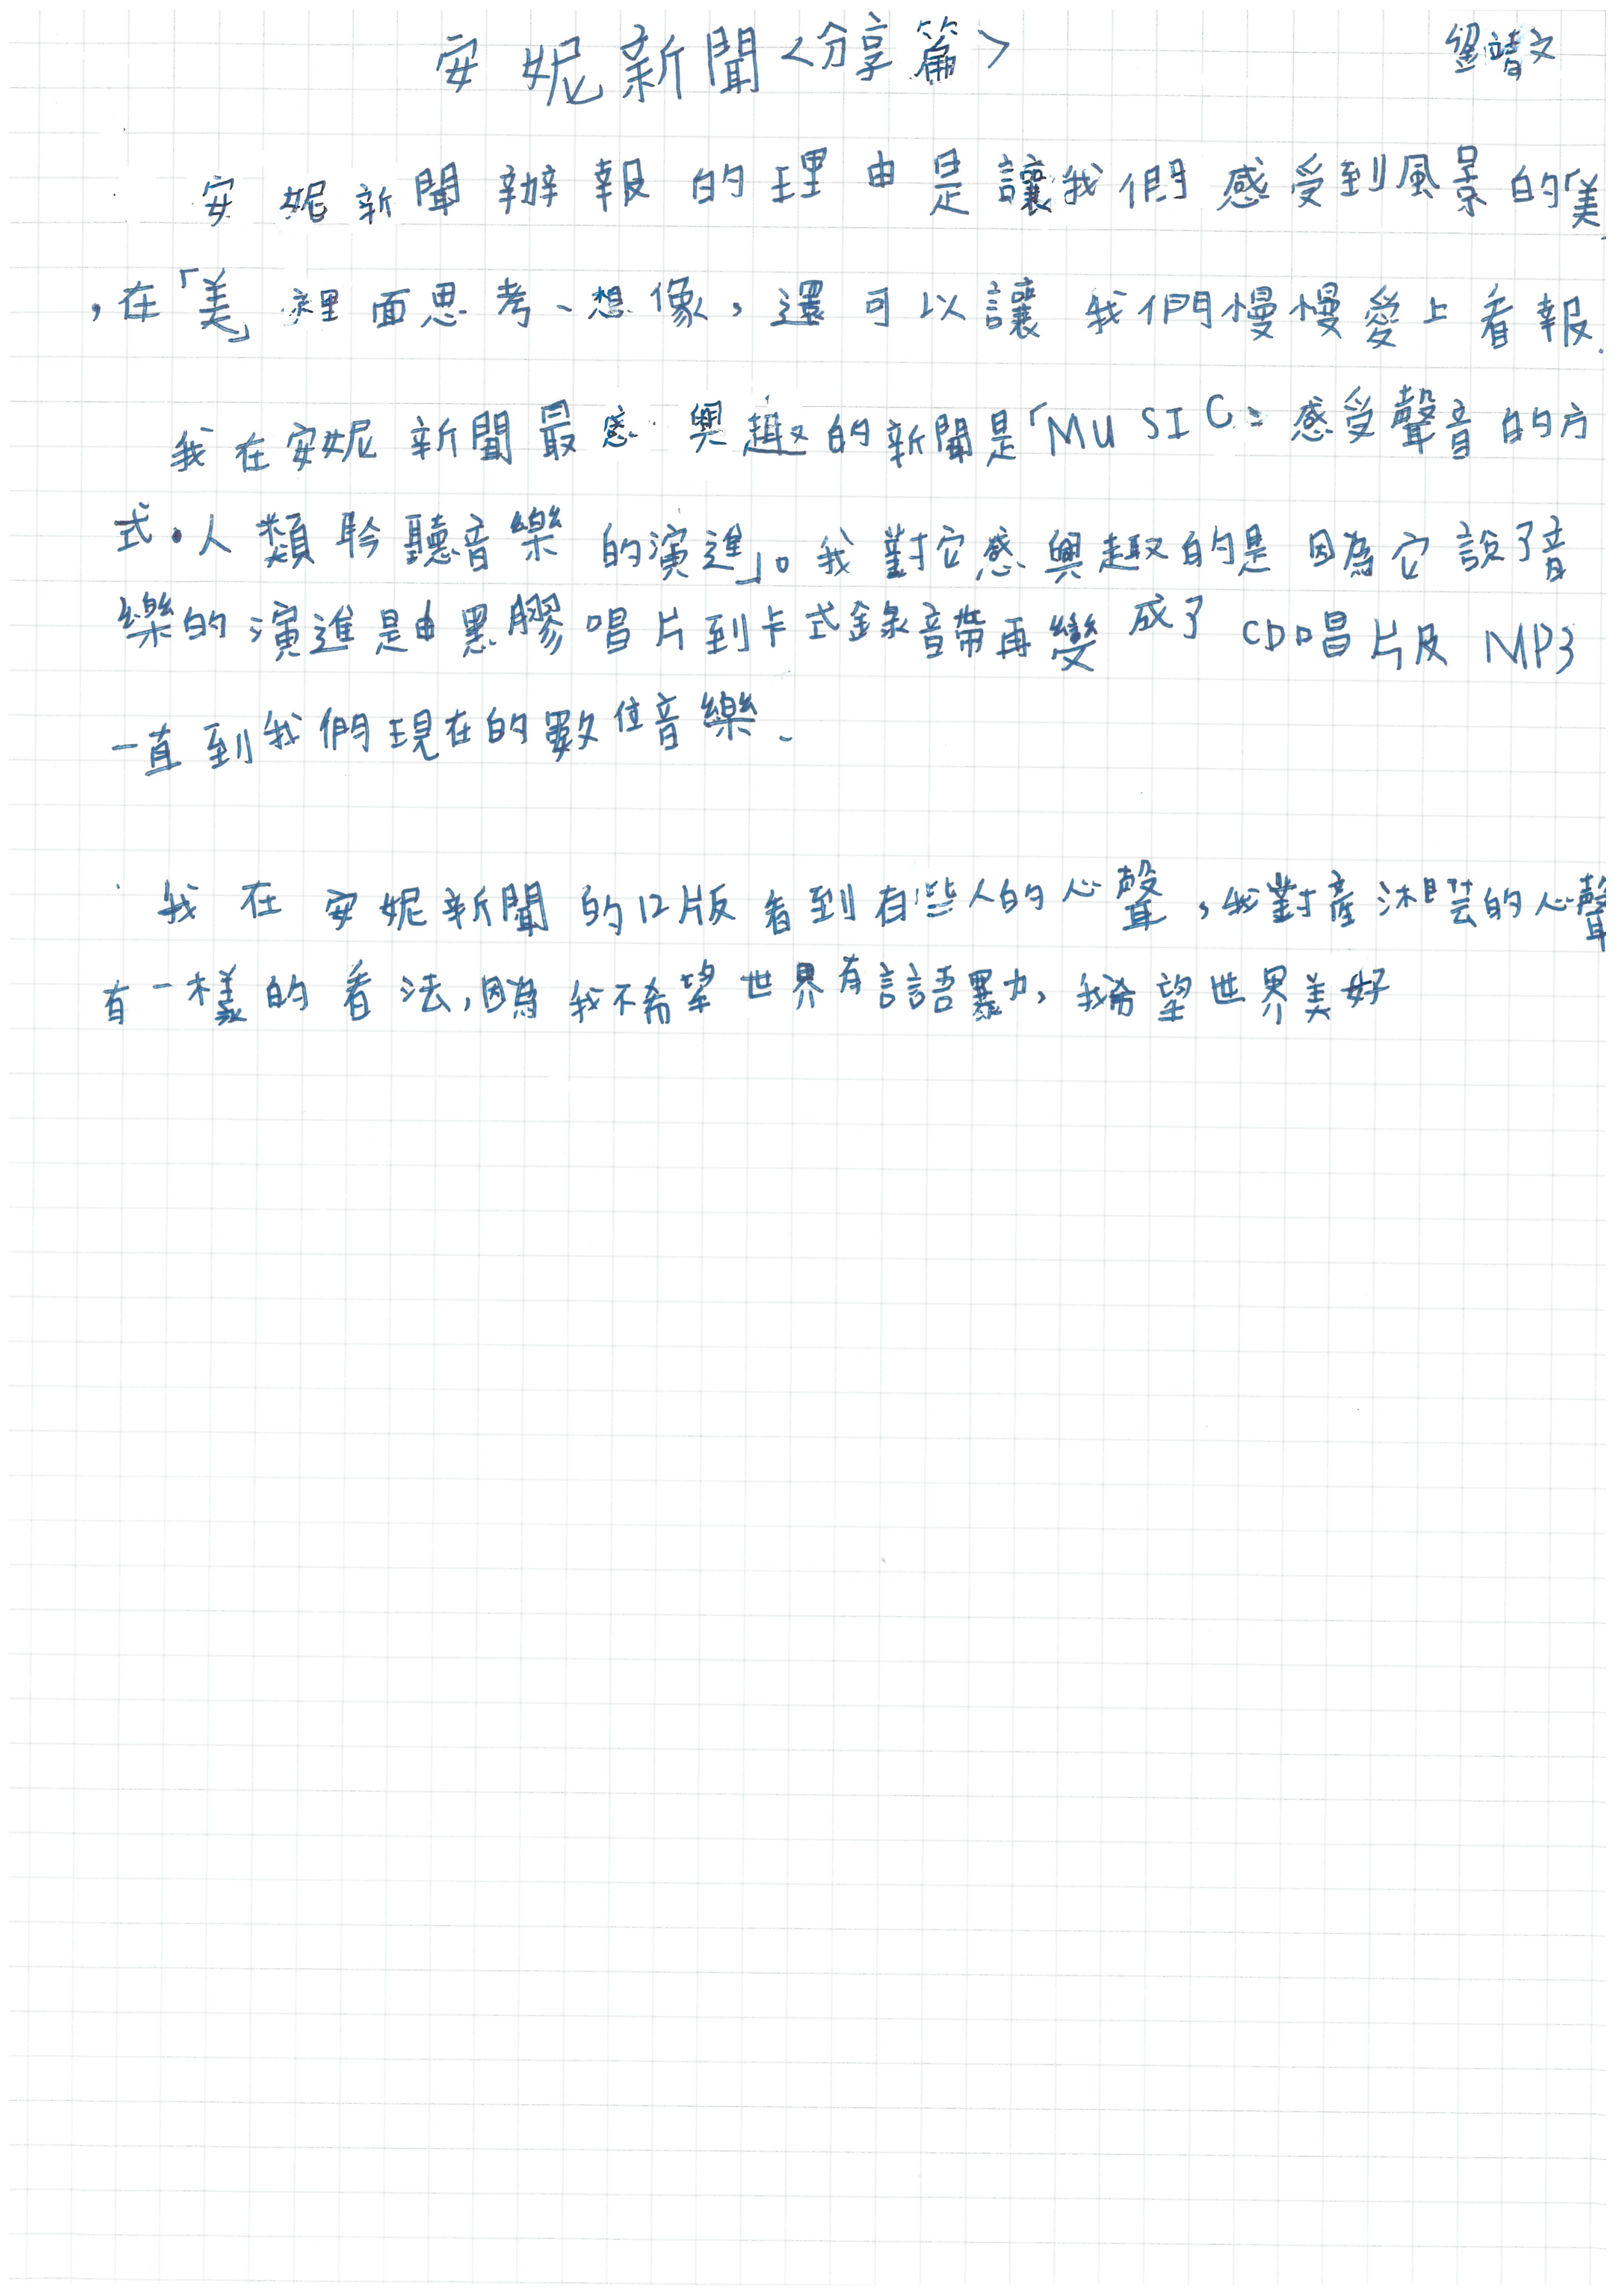 安妮新聞<分享篇>
靖文
安妮新聞辦報的理由是讓我們感受到風景的「美」
,在「美」裡面思考、想像,還可以讓我們慢慢愛上看報.
我在安妮新聞最感興趣的新聞是「MUSIC:感受聲音的方
式.人類聆聽音樂的演進」。我對它感興趣的是因為它說了音
樂的演進是由黑膠唱片到卡式錄音帶再變成了CD唱片及MP3
一直到我們現在的數位音樂.
我在安妮新聞的12版看到有些人的心聲,我對產沐的心聲
有一樣的看法,因為我不希望世界有言語暴力,我希望世界美好